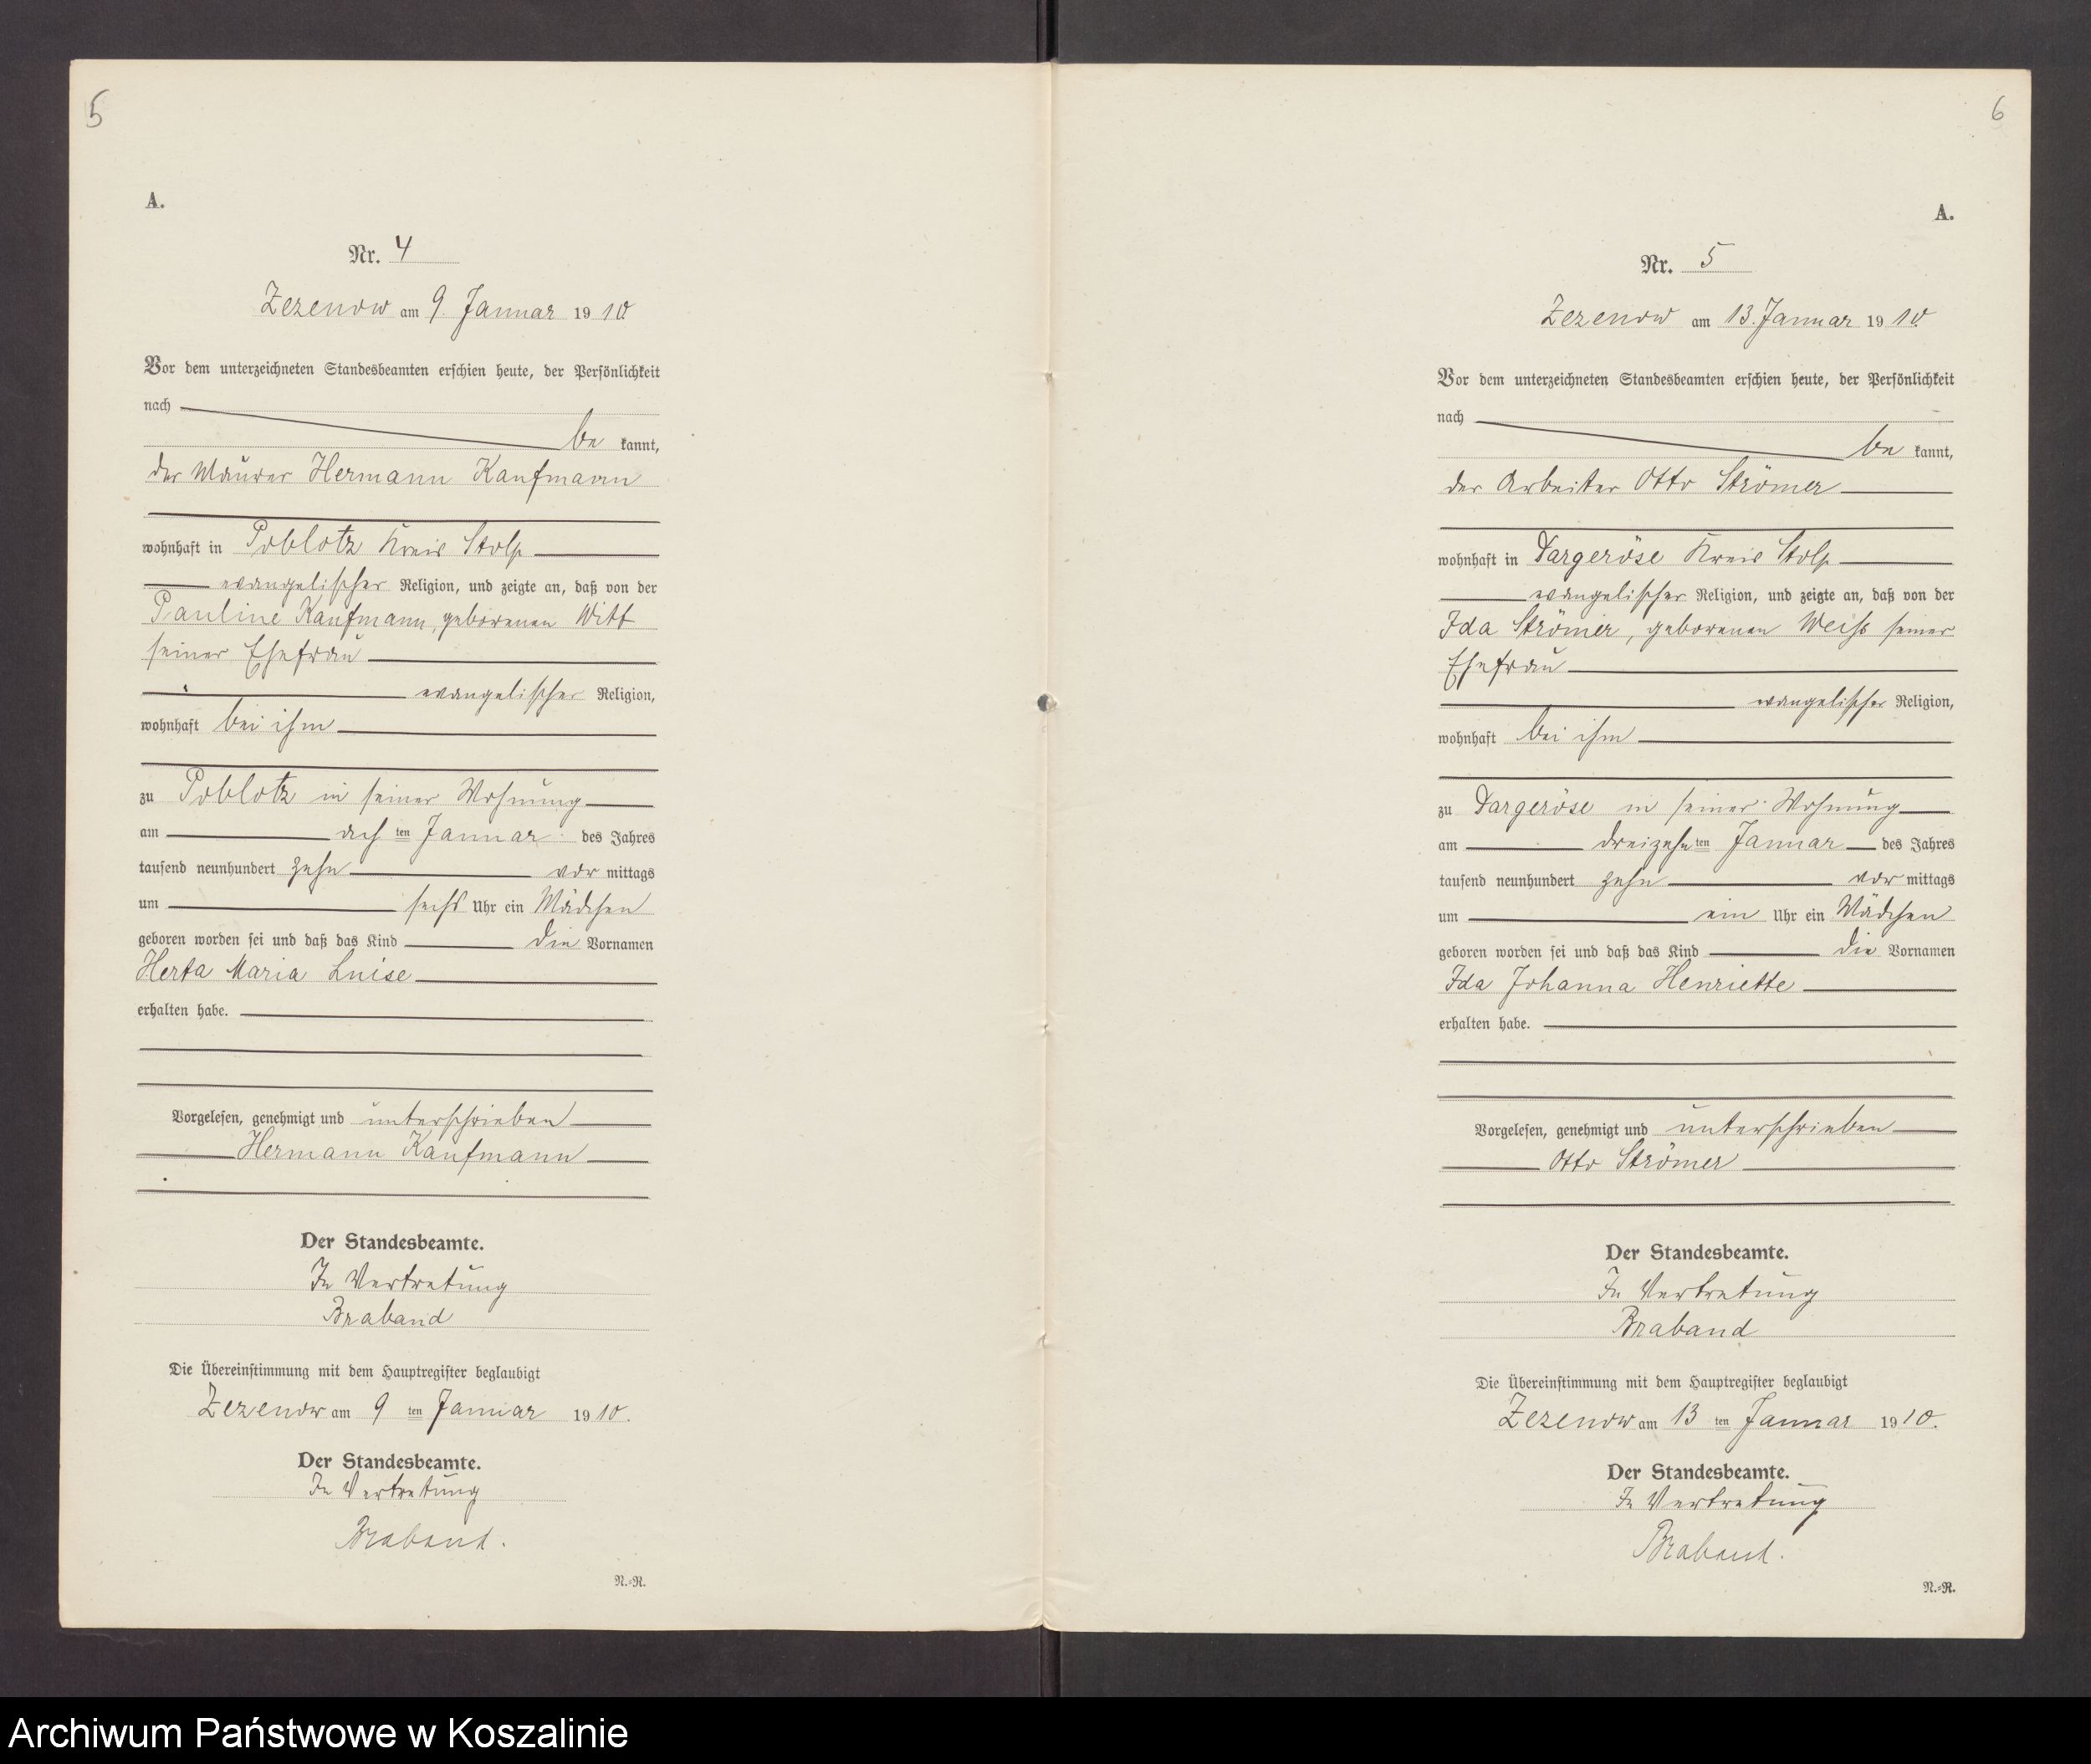 5
A.
Nr. 4
Zezenow am 9. Januar 1910.
Vor dem unterzeichneten Standesbeamten erschien heute, der Persönlichkeit
nach
be kannt,
der Maurer Hermann Kaufmann
wohnhaft in Poblotz Kreis Stolp
evangelischer Religion, und zeigte an, daß von der
Pauline Kaufmann, geborenen Witt
seiner Ehefrau
evangelischer Religion,
wohnhaft bei ihm
zu Poblotz in seiner Wohnung
am ach ten Januar des Jahres
tausend neunhundert zehn vor mittags
um sechs Uhr ein Mädchen
geboren worden sei und daß das Kind die Vornamen
Herta Maria Luise
erhalten habe.
Vorgelesen, genehmigt und unterschrieben
Hermann Kaufmann
Der Standesbeamte.
In Vertretung
Braband
Die Übereinstimmung mit dem Hauptregister beglaubigt
Zezenow am 9 ten Januar 1910.
Der Standesbeamte.
In Vertretung
Braband.
N.-R.
6
A.
Nr. 5
Zezenow am 13. Januar 1910.
Vor dem unterzeichneten Standesbeamten erschien heute, der Persönlichkeit
nach
be kannt,
der Arbeiter Otto Strömer
wohnhaft in Dargeröse Kreis Stolp
evangelischer Religion, und zeigte an, daß von der
Ida Strömer, geborenen Weiss seiner
Ehefrau
evangelischer Religion,
wohnhaft bei ihm
zu Dargeröse in seiner Wohnung
am dreizehn ten Januar des Jahres
tausend neunhundert zehn vor mittags
um ein Uhr ein Mädchen
geboren worden sei und daß das Kind die Vornamen
Ida Johanna Henriette
erhalten habe.
Vorgelesen, genehmigt und unterschrieben
Otto Strömer
Der Standesbeamte.
In Vertretung
Braband
Die Übereinstimmung mit dem Hauptregister beglaubigt
Zezenow am 13 ten Januar 1910.
Der Standesbeamte.
In Vertretung
Braband.
N.-R.
Archiwum Państwowe w Koszalinie